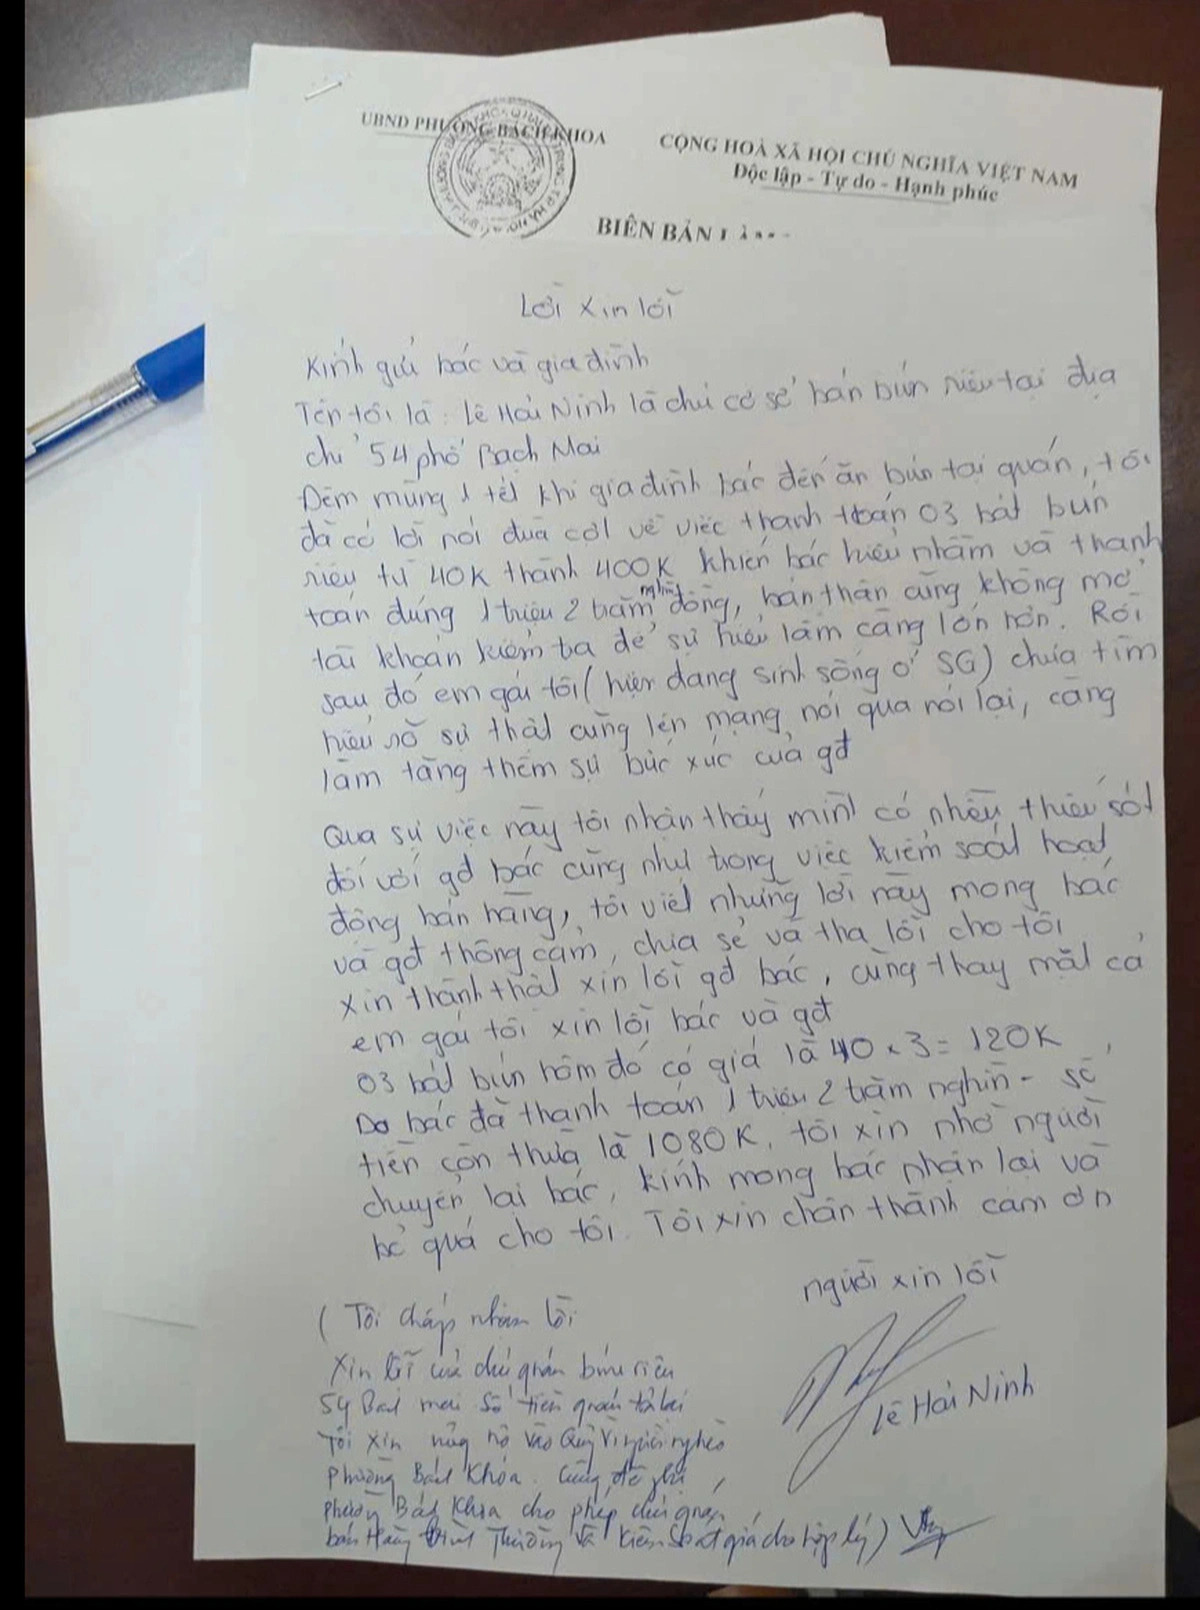 UBND PHƯỜNG BÁCH KHOA
CỘNG HOÀ XÃ HỘI CHỦ NGHĨA VIỆT NAM
Độc lập - Tự do - Hạnh phúc
BIÊN BẢN
Lời xin lỗi
Kính gửi bác và gia đình
Tên tôi là: Lê Hải Ninh là chủ cơ sở bán bún riêu tại địa
chỉ 54 phố Bạch Mai
Đêm mùng 1 tết khi gia đình bác đến ăn bún tại quán, tôi
đã có lời nói đùa cợt về việc thanh toán 03 bát bún
riêu từ 40K thành 400K khiến bác hiểu nhầm và thanh
toán đúng 1 triệu 2 trăm nghìn đồng, bản thân cũng không mở
tài khoản kiểm tra để sự hiểu lầm càng lớn hơn. Rồi
sau đó em gái tôi (hiện đang sinh sống ở SG) chưa tìm
hiểu rõ sự thật cũng lên mạng nói qua nói lại, càng
làm tăng thêm sự bức xúc của gđ
Qua sự việc này tôi nhận thấy mình có nhiều thiếu sót
đối với gđ bác cũng như trong việc kiểm soát hoạt
động bán hàng, tôi viết những lời này mong bác
và gđ thông cảm, chia sẻ và tha lỗi cho tôi
xin thành thật xin lỗi gđ bác, cũng thay mặt cả
em gái tôi xin lỗi bác và gđ
03 bát bún hôm đó có giá là 40 x 3 = 120K
Do bác đã thanh toán 1 triệu 2 trăm nghìn - số
tiền còn thừa là 1080K, tôi xin nhờ người
chuyển lại bác, kính mong bác nhận lại và
bỏ quá cho tôi. Tôi xin chân thành cảm ơn
người xin lỗi
Lê Hải Ninh
( Tôi chấp nhận lời
xin lỗi của chủ quán bún riêu
54 Bạch mai Số tiền quán trả lại
Tôi xin ủng hộ vào Quỹ Vì người nghèo
phường Bách Khoa. Cũng đề nghị
phường Bách Khoa cho phép chủ quán
bán Hàng Bình Thường Và Kiểm Soát giá cho hợp lý )